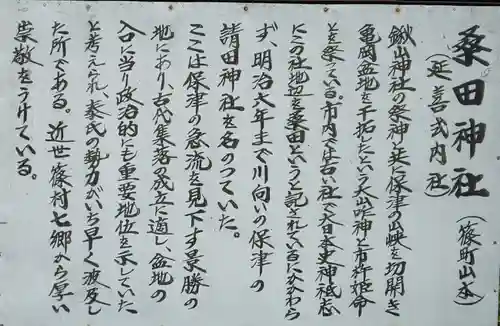 桑田神社(篠町山本)
(延喜式内社)
鍬山神社の祭神と共に保津の山峡を切開き
亀岡盆地を干拓したという大山咋神と市杵姫命
とを祭っている。市内では古い社で大日本史神祇志
にこの社地辺を桑田というと記されているにかかわら
ず、明治六年まで川向いの保津の
請田神社を名のっていた。
ここは保津の急流を見下す景勝の
地にあり、古代集落の成立に適し、盆地の
入口に当り政治的にも重要地位を示していた
と考えられ、秦氏の勢力がいち早く波及し
た所である。近世篠村七郷から厚い
崇敬をうけている。